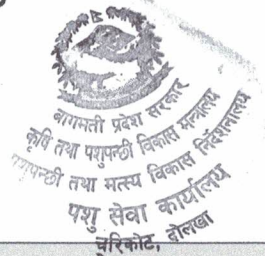 बागमती प्रदेश सरकार
कृषि तथा पशुपन्छी विकास मन्त्रालय
पशुपन्छी तथा मत्स्य विकास निर्देशनालय
पशु सेवा कार्यालय
चरिकोट, दोलखा